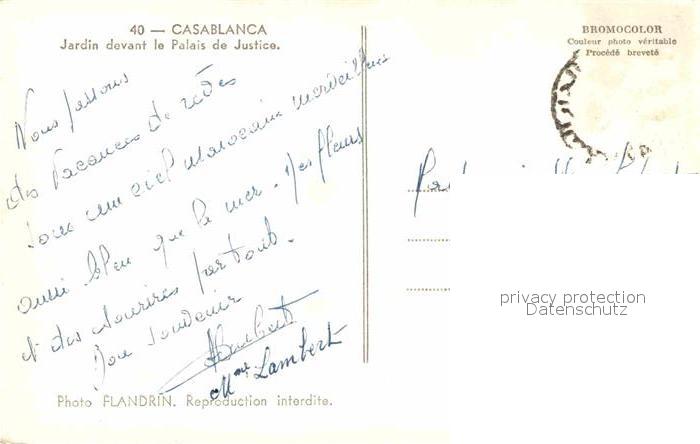 40 — CASABLANCA
Jardin devant le Palais de Justice.
BROMOCOLOR
Couleur photo véritable
Procédé breveté
Nous passons
des vacances de rêves
sous un ciel marocain merveilleux
aussi bleu que la mer. Des fleurs
et des sourires partout.
Bon souvenir
Lambert
Mme Lambert
privacy protection
Datenschutz
Photo FLANDRIN. Reproduction interdite.